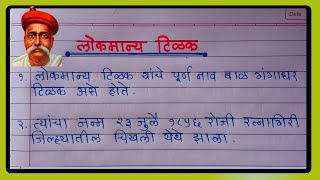 Date
लोकमान्य टिळक
१. लोकमान्य टिळक यांचे पूर्ण नाव बाळ गंगाधर
टिळक असे होते.
२. त्यांचा जन्म २३ जुलै १८५६ रोजी रत्नागिरी
जिल्ह्यातील चिखली येथे झाला.